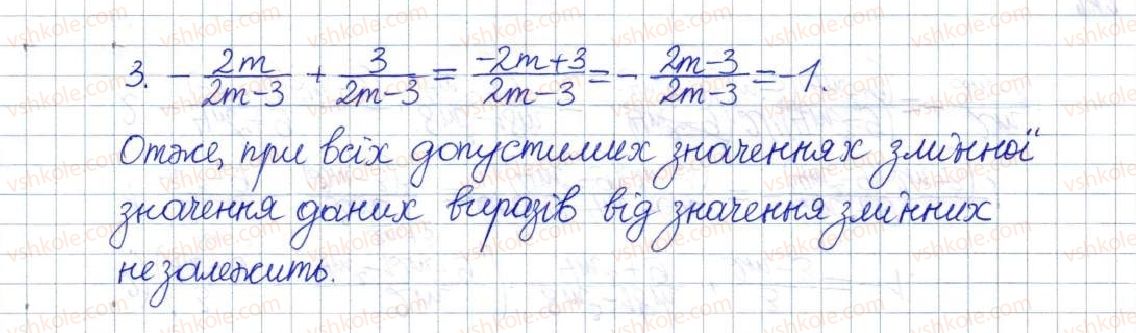 3. - 2m/(2m-3) + 3/(2m-3) = (-2m+3)/(2m-3) = - (2m-3)/(2m-3) = -1.
Отже, при всіх допустимих значеннях змінної
значення даних виразів від значення змінних
не залежить.